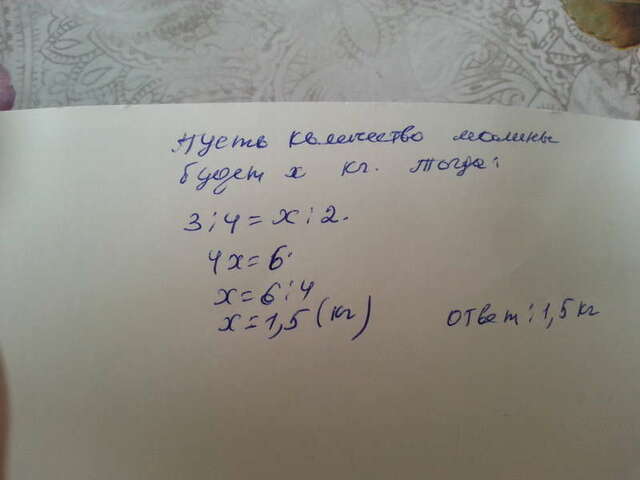 Пусть количество малины
будет х кг. Тогда:
3:4=х:2.
4х=6.
х=6:4
х=1,5(кг)
ответ:1,5кг